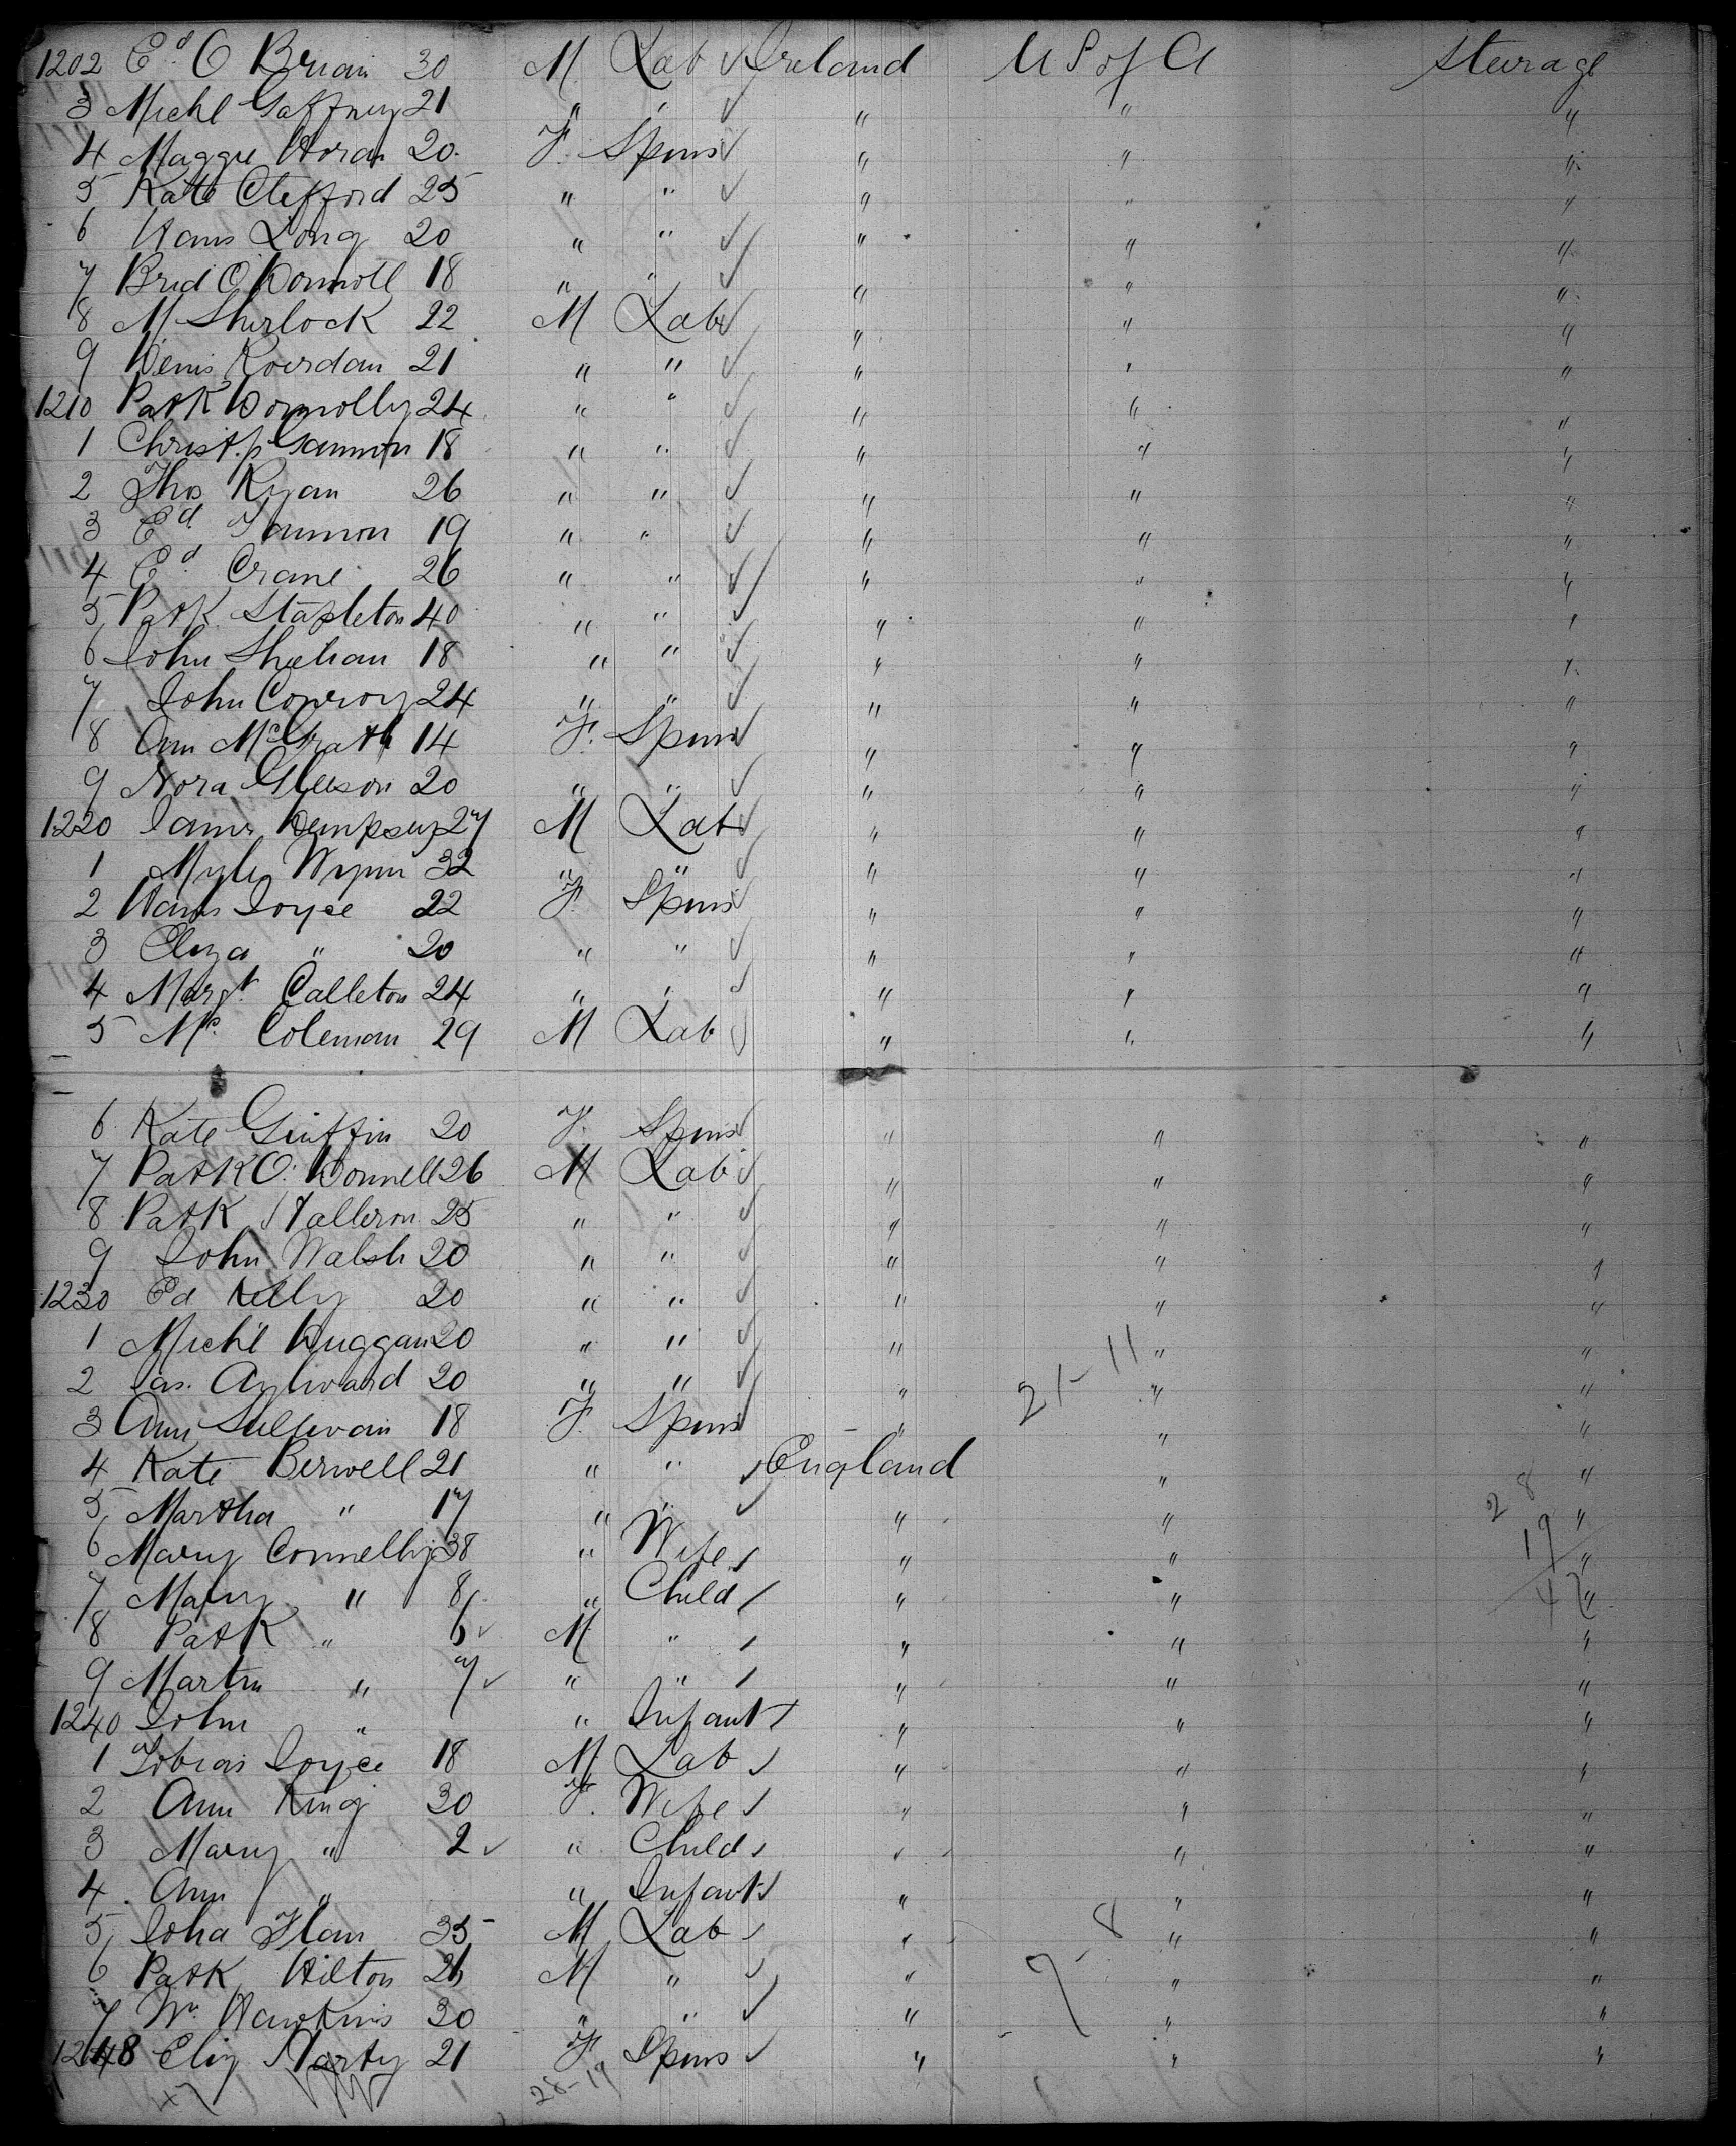 1202 Ed. O Brian 30 M Lab ✓ Ireland U S of A Steerage
3 Michl Gaffney 21 " " ✓ " " "
4 Maggie Horan 20 F. Spins ✓ " " "
5 Kate Clifford 25 " " ✓ " " "
6 Hans Long 20 " " ✓ " " "
7 Brid O'Donnell 18 " " ✓ " " "
8 M Sherlock 22 M Lab ✓ " " "
9 Denis Roirdan 21 " " ✓ " " "
1210 Patk Donnolly 24 " " ✓ " " "
1 Christ.p Gannon 18 " " ✓ " " "
2 Thos Ryan 26 " " ✓ " " "
3 Ed. 19 " " ✓ " " "
4 Ed. Crane 26 " " ✓ " " "
5 Patk Stapleton 40 " " ✓ " " "
6 John Sheehan 18 " " ✓ " " "
7 John Conroy 24 " " ✓ " " "
8 Ann McGrath 14 F. Spins ✓ " " "
9 Nora Gleeson 20 " " ✓ " " "
1220 James Dempsey 27 M Lab ✓ " " "
1 Myles Wynn 32 " " ✓ " " "
2 Joyce 22 F. Spins ✓ " " "
3 Eliza " 20 " " ✓ " " "
4 Margt. Calleton 24 " " ✓ " " "
5 Coleman 29 M Lab ✓ " " "
6 Kate Griffin 20 F. Spins ✓ " " "
7 Patk O'Donnell 26 M Lab ✓ " " "
8 Patk Halleron 25 " " ✓ " " "
9 John Walsh 20 " " ✓ " " "
1230 Ed Kelly 20 " " ✓ " " "
1 Michl Duggan 20 " " ✓ " " "
21-11
2 Jas. Aylward 20 " " ✓ " " "
3 Ann Sullivan 18 F. Spins ✓ " " "
4 Kate Berwell 21 " " ✓ England " "
5 Martha " 17 " " ✓ " " "
28
6 Mary Connelly 38 " Wife ✓ " " "
19
7 Mary " 8 " Child ✓ " " "
47
8 Patk " 6 ✓ M " ✓ " " "
9 Martin " 7 ✓ " " ✓ " " "
1240 John " " Infant ✓ " " "
1 Tobias Joyce 18 M Lab ✓ " " "
2 Ann King 30 F. Wife ✓ " " "
3 Mary " 2 ✓ " Child ✓ " " "
4 Ann " " Infant ✓ " " "
5 35 M Lab ✓ " " "
7-8
6 Patk Hilton M " ✓ " " "
7 Wm. Hawkins 30 " " ✓ " " "
1248 Eliz Harty 21 F Spins ✓ " " "
47 28-19